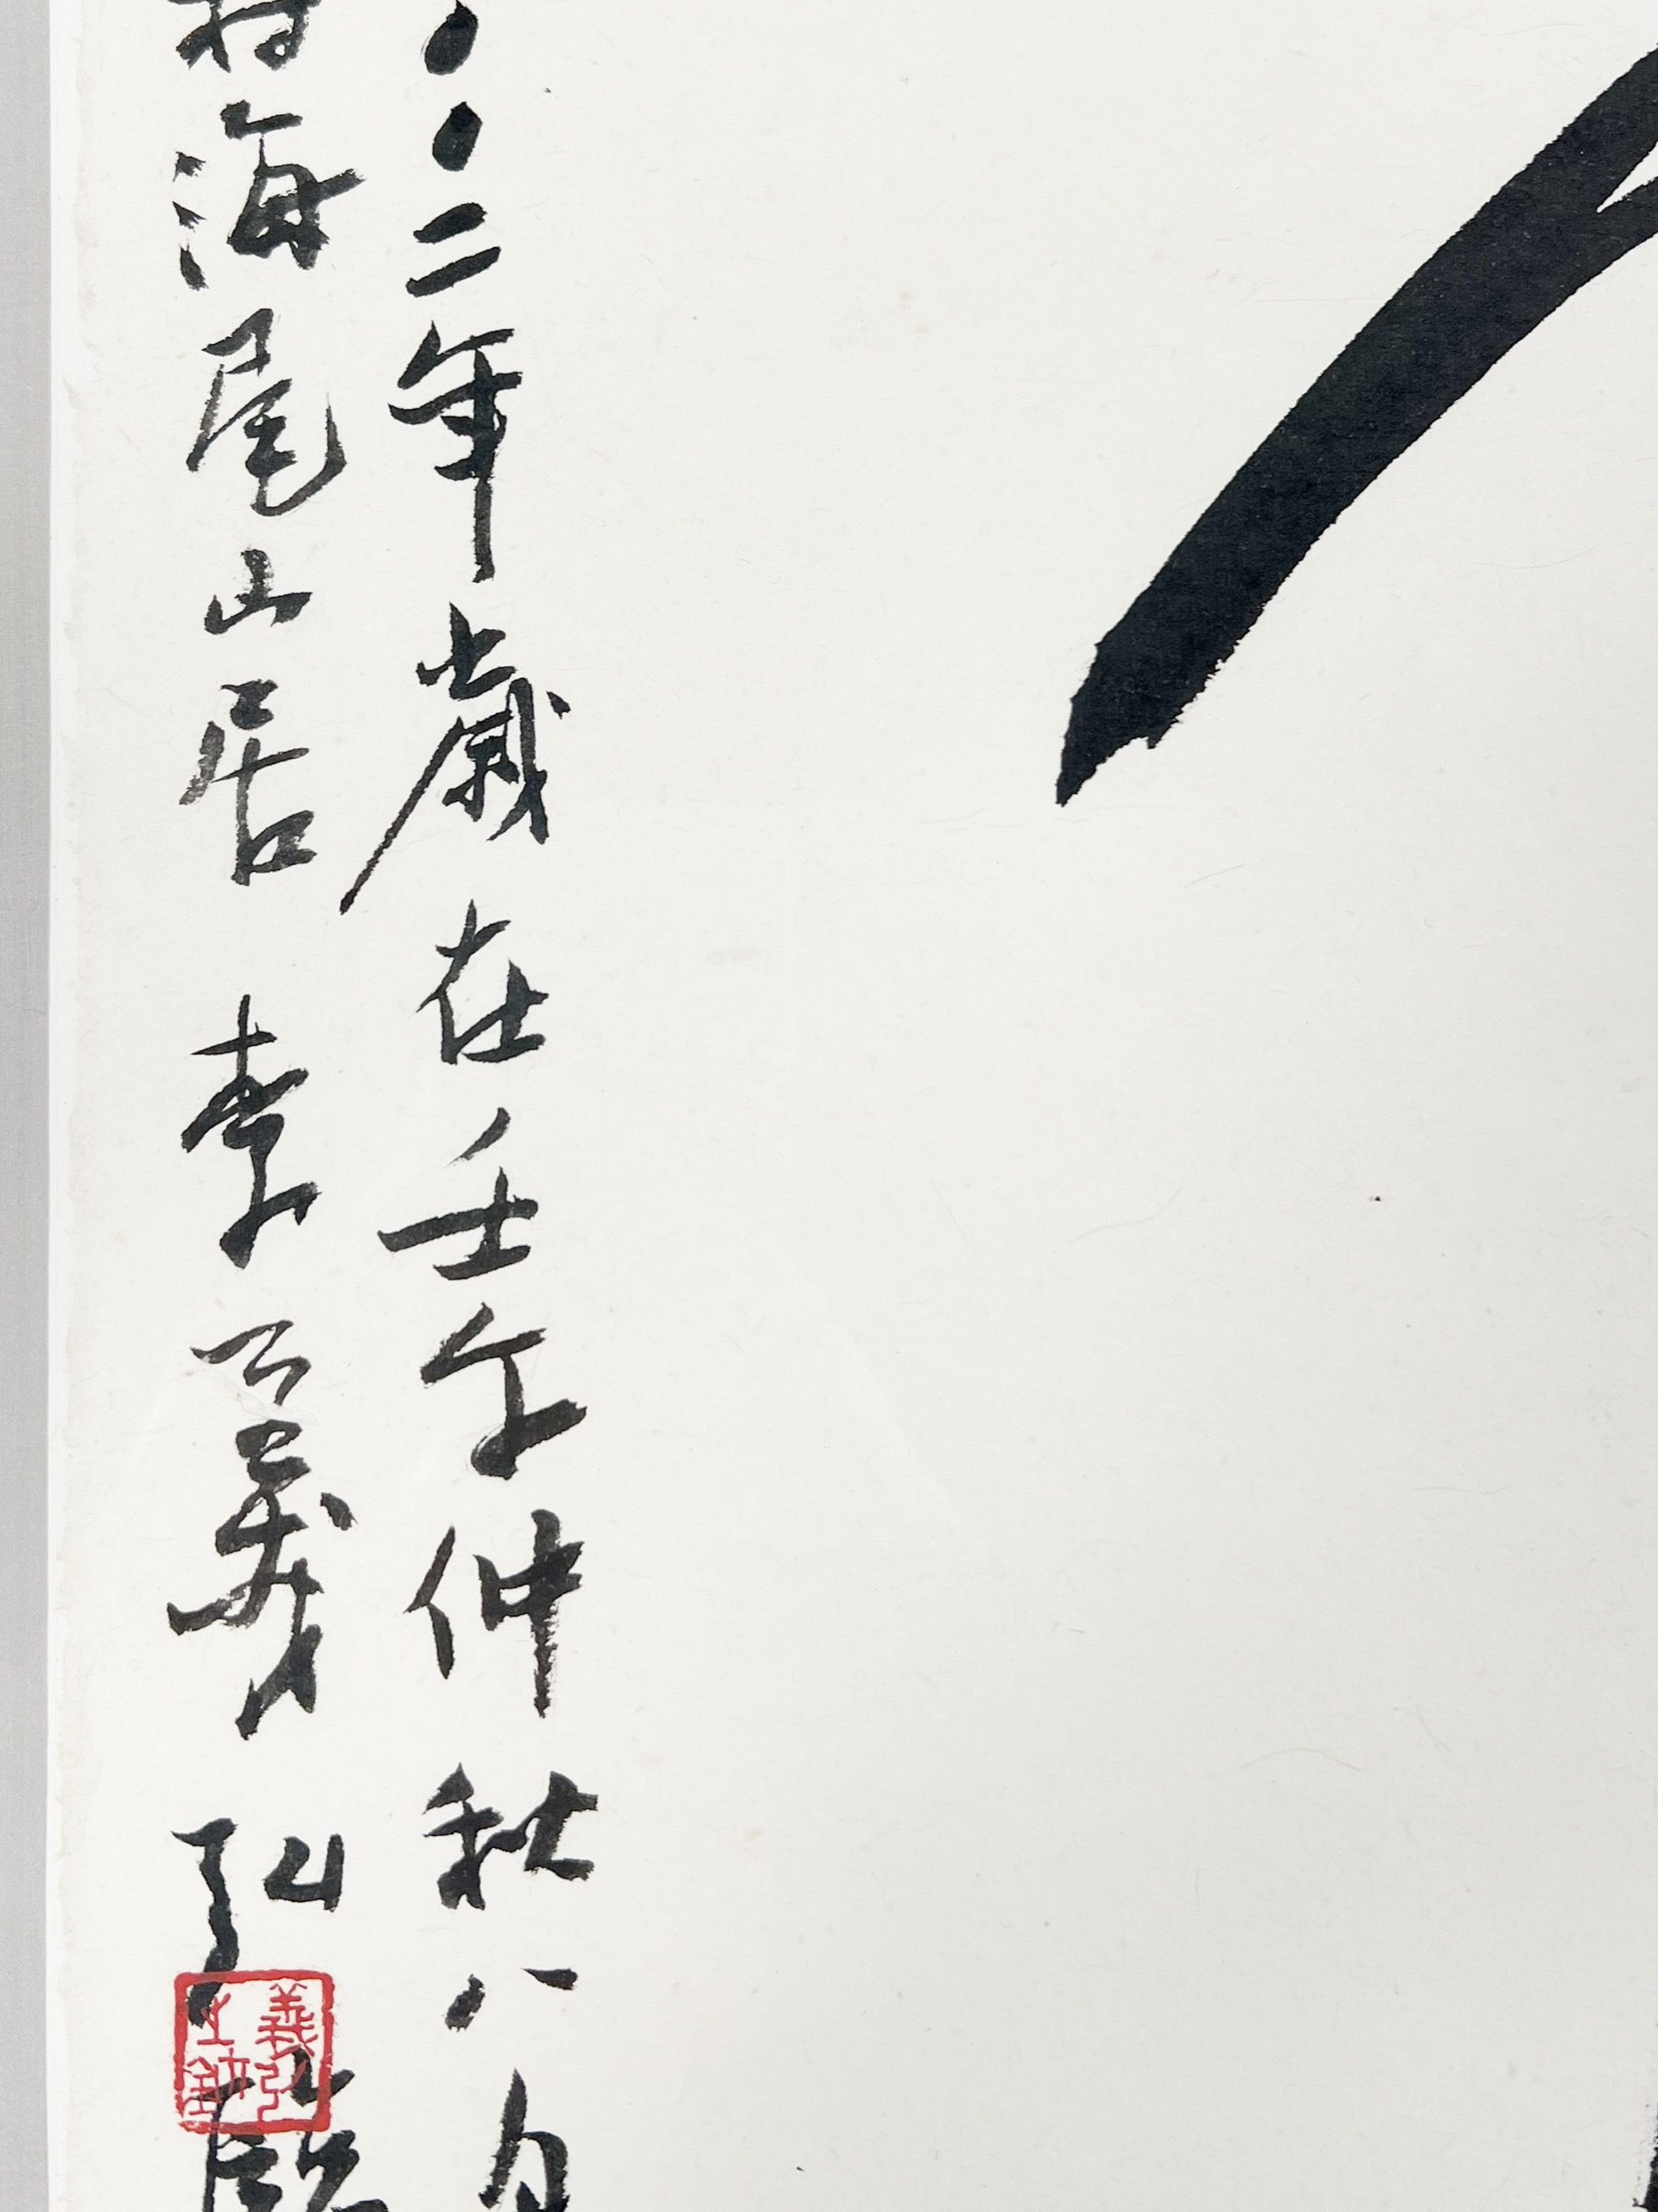 〇〇二年歲在壬午仲秋八月
海尾山居 李義弘
義弘之鉨